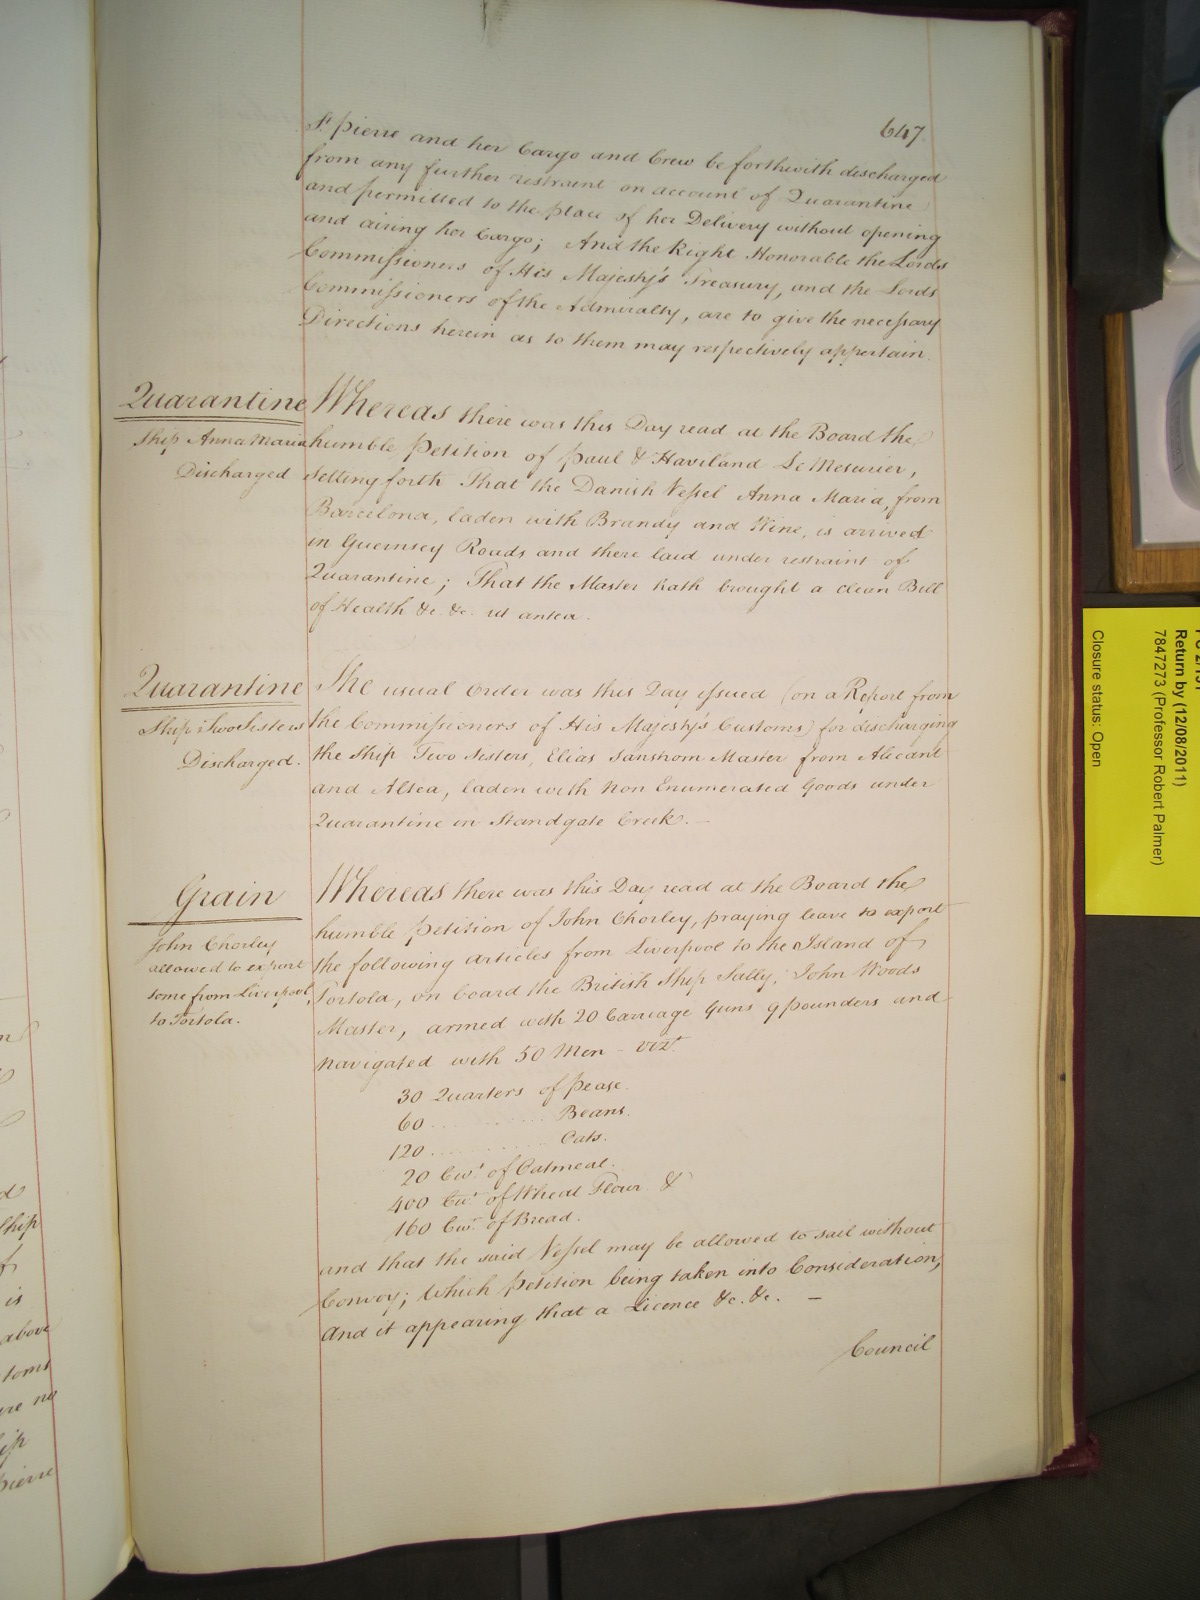 647.
St Pierre and her Cargo and Crew be forthwith discharged
from any further restraint on account of Quarantine
and permitted to the place of her Delivery without opening
and airing her Cargo; And the Right Honorable the Lords
Commissioners of His Majesty's Treasury, and the Lords
Commissioners of the Admiralty, are to give the necessary
Directions herein as to them may respectively appertain.
Quarantine
Ship Anna Maria
Discharged
Whereas there was this Day read at the Board the
humble Petition of Paul & Haviland Le Mesurier,
Setting forth That the Danish Vessel Anna Maria, from
Barcelona, laden with Brandy and Wine, is arrived
in Guernsey Roads and there laid under restraint of
Quarantine; That the Master hath brought a clean Bill
of Health &c. &c. ut antea.
Quarantine
Ship Two Sisters
Discharged.
The usual Order was this Day issued (on a Report from
the Commissioners of His Majesty's Customs) for discharging
the Ship Two Sisters, Elias Sanstrom Master from Alicant
and Altea, laden with Non Enumerated Goods under
Quarantine in Standgate Creek. —
Grain
John Chorley
allowed to export
some from Liverpool,
to Tortola.
Whereas there was this Day read at the Board the
humble Petition of John Chorley, praying leave to export
the following articles from Liverpool to the Island of
Tortola, on board the British Ship Sally, John Woods
Master, armed with 20 Carriage Guns 9 pounders and
navigated with 50 Men - vizt.
30 Quarters of Pease.
60 ............ Beans.
120 ............ Oats.
20 Cwt. of Oatmeal.
400 Cwt. of Wheat Flour &
160 Cwt. of Bread.
and that the said Vessel may be allowed to sail without
Convoy; Which Petition being taken into Consideration,
And it appearing that a Licence &c. &c. —
Council
n
d
Ship
of
is
above
toms
are no
Ship
Pierre
Return by (12/08/2011)
7847273 (Professor Robert Palmer)
Closure status: Open